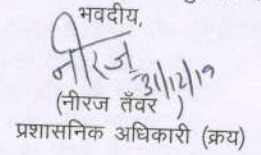 भवदीय,
नीरज
31/12/19
(नीरज तँवर )
प्रशासनिक अधिकारी (क्रय)